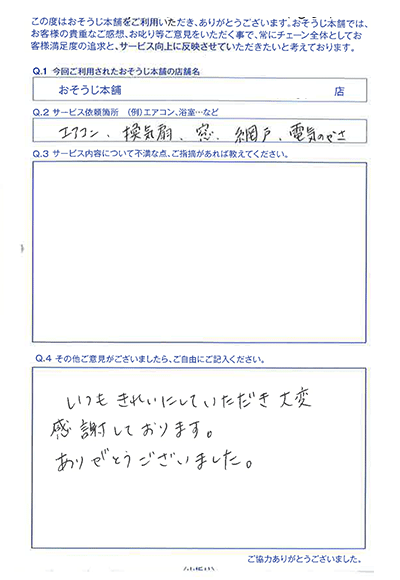 この度はおそうじ本舗をご利用いただき、ありがとうございます。おそうじ本舗では、
お客様の貴重なご感想、お叱り等ご意見をいただく事で、常にチェーン全体としてお
客様満足度の追求と、サービス向上に反映させていただきたいと考えております。
Q.1 今回ご利用されたおそうじ本舗の店舗名
おそうじ本舗 店
Q.2 サービス依頼箇所 (例)エアコン、浴室…など
エアコン、換気扇、窓、網戸、電気のかさ
Q.3 サービス内容について不満な点、ご指摘があれば教えてください。
Q.4 その他ご意見がございましたら、ご自由にご記入ください。
いつもきれいにしていただき大変
感謝しております。
ありがとうございました。
ご協力ありがとうございました。